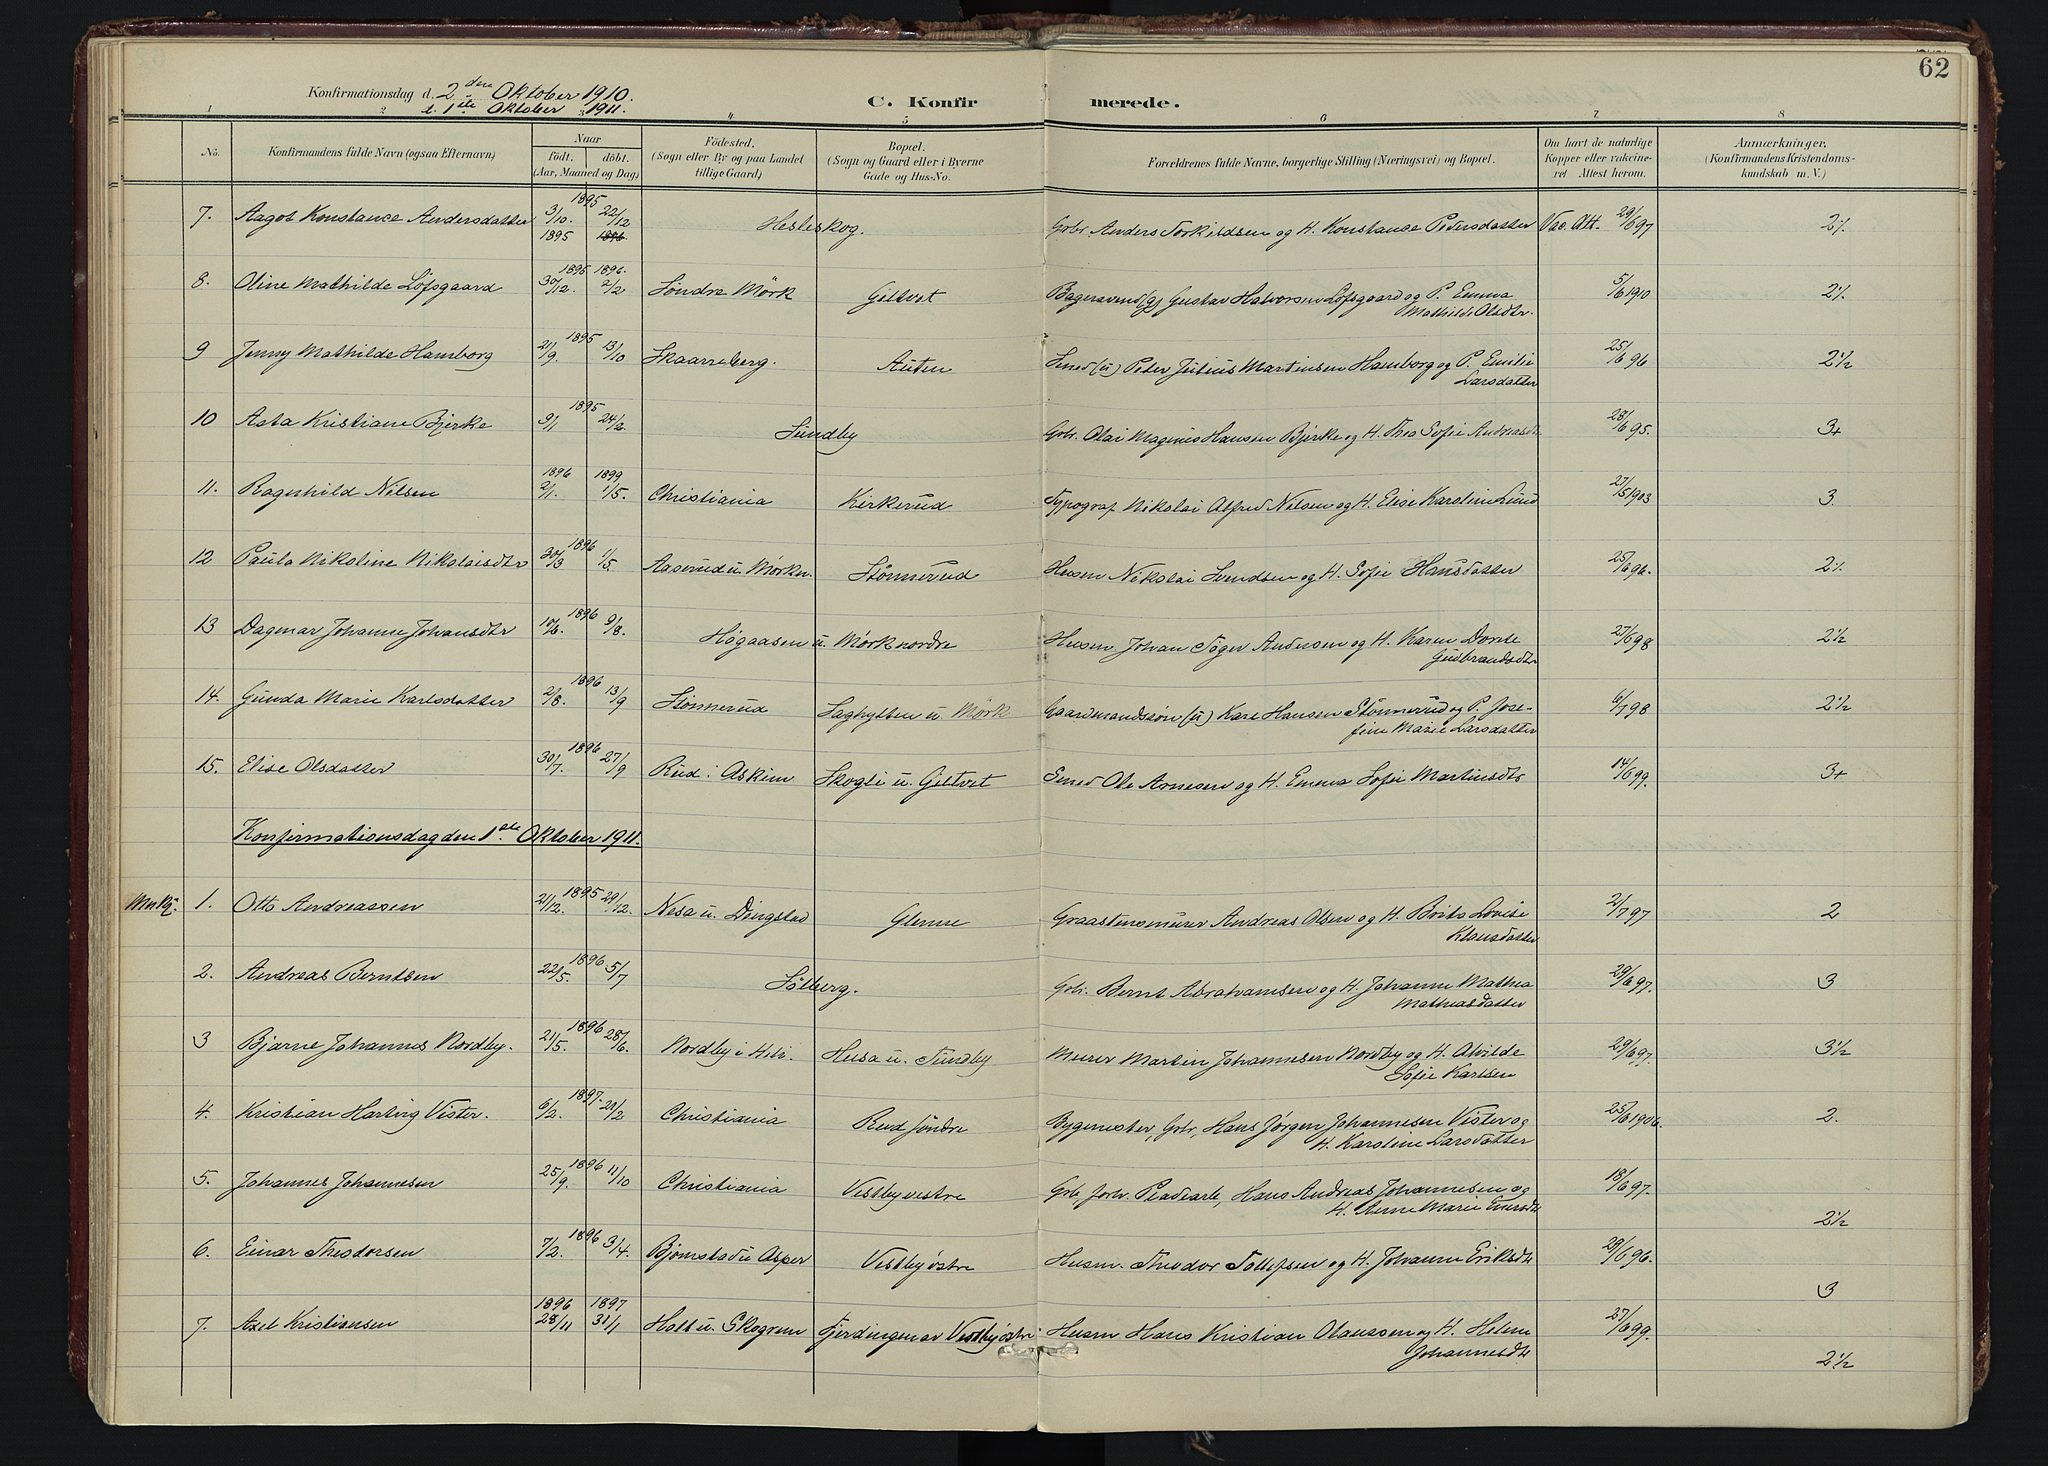 62
Konfirmationsdag d. 2den Oktober 1910.
d. 1ste Oktober 1911.
C. Konfirmerede.
1 2 3 4 5 6 7 8
No. Konfirmandens fulde Navn (ogsaa Efternavn) Naar födt. döbt. (Aar, Maaned og Dag) Födested. (Sogn eller By og paa Landet tillige Gaard) Bopæl. (Sogn og Gaard eller i Byerne Gade og Hus-No. Forældrenes fulde Navne, borgerlige Stilling (Næringsvei) og Bopæl. Om havt de naturlige Kopper eller vakcineret Attest herom. Anmærkninger. (Konfirmandens Kristendomskundskab m. V.)
7. Aagot Konstance Andersdatter 3/10. 1895 1895 22/12 1896 Hesleskog. Gbr. Anders Torkildsen og H. Konstance Pedersdatter Vac. Att. 29/6 97 2½
8. Oline Mathilde Löfsgaard 1895 30/12. 1896. 2/2 Søndre Mörk Giltvet Bagersvend (g) Gustav Halvorsen Löfsgaard og P. Emma
Mathilde Olsdtr. 5/6 1910 2½
9 Jenny Mathilde Hamborg 21/9. 1895 13/10 Skaarreberg. Auten Smed (u) Peter Julius Martinsen Hamborg og P. Emilie
Larsdatter 25/6 96 2½
10 Asta Kristiane Bjerke 9/1 1895 24/2 Sundby Gbr. Olai Magnus Hansen Bjerke og H. Thea Sofie Andreasdt 28/6 95. 3+
11. Ragnhild Nilsen 1896 2/1. 1899 1/5. Christiania Kirkerud Typograf Nikolai Alfred Nilsen og H. Elise Karoline Lund 27/5 1903 3.
12 Paula Nikoline Nikolaisdtr 30/3 1896 1/5. Aaserud u. Mörk n. Stønnerud Husm Nikolai Svendsen og H. Sofie Hansdatter 25/6 96. 2½
13 Dagmar Johanne Johansdtr 10/6. 1896 9/8. Högaasen u. Mörk nordre Husm Johan Andersen og H. Karen Dorte
Gudbrandsdtr 27/6 98 2½
14. Gunda Marie Karlsdatter 2/8. 1896 13/9 Stønnerud Saghytten u. Mörk Gaardmandssøn (u) Karl Hansen Stønnerud og P. Jose-
fine Marie Larsdatter 6/7 98 2½
15. Elise Olsdatter 30/7. 1896 27/9 Rud i Askim Skogli u. Giltvet Smed Ole Arnesen og H. Emma Sofie Martinsdtr 14/6 99. 3+
Konfirmationsdag den 1ste Oktober 1911.
1. Otto Andreassen 21/12. 1895 29/12. Nesa u. Dingstad Glenne Graastensmurer Andreas Olsen og H. Brita Lovise
Klausdatter 2/7 97 2
2. Andreas Berntsen 22/5. 1896 5/7 Sölberg. Gbr. Bernt Abrahamsen og H. Johanne Mathea
Mathiasdatter 29/6 97. 3
3 Bjarne Johannes Nordby. 21/5. 1896 28/6. Nordby i Husa u. Sundby Murer Martin Johannesen Nordby og H. Alvilde
Sofie Karlsen 29/6 97. 3½
4. Kristian Hartvig Vister. 6/2. 1897. 21/2 Christiania Rud söndre Bygmester, Gbr, Hans Jørgen Johannesen Vister og
H. Karoline Larsdatter 25/6 1906. 2.
5. Johannes Johannesen 25/9. 1896 11/10 Christiania Vestby vestre Gbr, Hans Andreas Johannesen og
H. Anne Marie 18/6 97. 2½
6. Einar Theodorsen 7/2. 1896 3/4. Bjørnstad u Asper Vestby östre Husm. Theodor Tollefsen og H. Johanne Eriksdt 29/6 96. 3
7. Axel Kristiansen 1896 28/11 1897 31/1 Holt u. Skogrum Fjerdingen av Vestby östre Husm Hans Kristian Olaussen og H. Helene
Johannesdt 27/6 99. 2½